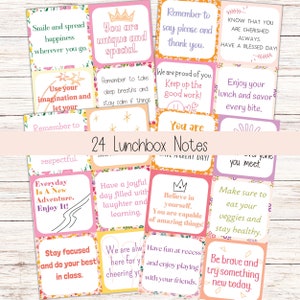 Smile and spread
happiness
wherever you go.
You are
unique and
special.
Remember to
say please and
thank you.
KNOW THAT YOU
ARE CHERISHED
ALWAYS.
HAVE A BLESSED DAY!
Use your
imagination and
let your
Remember to take
deep breaths and
stay calm if things
We are proud of you.
Keep up the
good work!
Enjoy your
lunch and savor
every bite.
Remember to
respectful
You are
GREAT DAY!
you meet.
24 Lunchbox Notes
Everyday
Is A New
Adventure;
Enjoy It!
Have a joyful
day filled with
laughter and
learning.
Believe in
yourself.
You are capable
of amazing things!
Make sure to
eat your
veggies and
stay healthy.
Stay focused
and do your best
in class.
We are always
here for you
cheering you
Have fun at recess
and enjoy playing
with your
friends.
Be brave and
try something
new today.